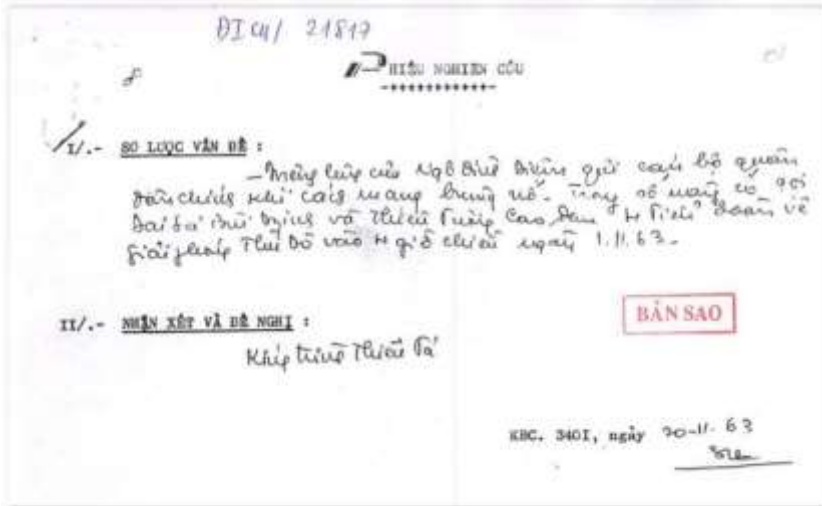 ĐICH/ 21817
PHIẾU NGHIÊN CỨU
I/.- SƠ LƯỢC VẤN ĐỀ :
- của Ngô Đình Diệm gửi cán bộ quân
dân chính khi cách mạng bùng nổ. Trong số này có gọi
Đại tá Bùi Dzinh và Thiếu Tướng Cao đoàn về
giải phóng Thủ Đô vào H giờ chiều ngày 1.11.63.
II/.- NHẬN XÉT VÀ ĐỀ NGHỊ :
Kính trình Thiếu Tá
BẢN SAO
KBC. 340I, ngày 20-11-63